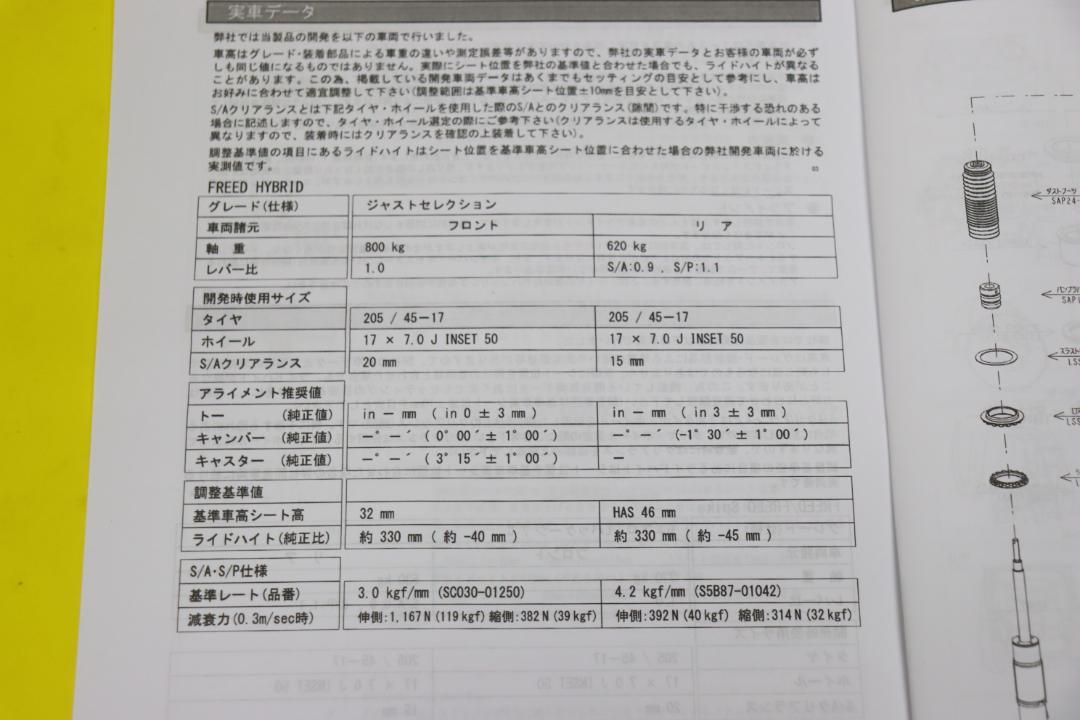 実車データ
弊社では当製品の開発を以下の車両で行いました。
車高はグレード・装着部品による車重の違いや測定誤差等がありますので、弊社の実車データとお客様の車両が必ず
しも同じ値になるものではありません。実際にシート位置を弊社の基準値と合わせた場合でも、ライドハイトが異なる
ことがあります。この為、掲載している開発車両データはあくまでもセッティングの目安として参考にし、車高は
お好みに合わせて適宜調整して下さい(調整範囲は基準車高シート位置±10mmを目安として下さい)。
S/Aクリアランスとは下記タイヤ・ホイールを使用した際のS/Aとのクリアランス(隙間)です。特に干渉する恐れのある
場合に記述しますので、タイヤ・ホイール選定の際にご参考下さい(クリアランスは使用するタイヤ・ホイールによって
異なりますので、装着時にはクリアランスを確認の上装着して下さい)。
調整基準値の項目にあるライドハイトはシート位置を基準車高シート位置に合わせた場合の弊社開発車両に於ける
実測値です。
03
FREED HYBRID
グレード(仕様) ジャストセレクション
車両諸元 フロント リア
軸 重 800 kg 620 kg
レバー比 1.0 S/A:0.9 , S/P:1.1
開発時使用サイズ
タイヤ 205 / 45-17 205 / 45-17
ホイール 17 × 7.0 J INSET 50 17 × 7.0 J INSET 50
S/Aクリアランス 20 mm 15 mm
アライメント推奨値
トー (純正値) in － mm ( in 0 ± 3 mm ) in － mm ( in 3 ± 3 mm )
キャンバー (純正値) －° －´ ( 0° 00´ ± 1° 00´ ) －° －´ (-1° 30´ ± 1° 00´ )
キャスター (純正値) －° －´ ( 3° 15´ ± 1° 00´ ) －
調整基準値
基準車高シート高 32 mm HAS 46 mm
ライドハイト(純正比) 約 330 mm ( 約 -40 mm ) 約 330 mm ( 約 -45 mm )
S/A・S/P仕様
基準レート(品番) 3.0 kgf/mm (SC030-01250) 4.2 kgf/mm (S5B87-01042)
減衰力(0.3m/sec時) 伸側:1,167N (119 kgf) 縮側:382N (39 kgf) 伸側:392N (40 kgf) 縮側:314N (32 kgf)
ダストブーツ
SAP24-
バンプラバ
SAP
スラスト
LSS
LSS